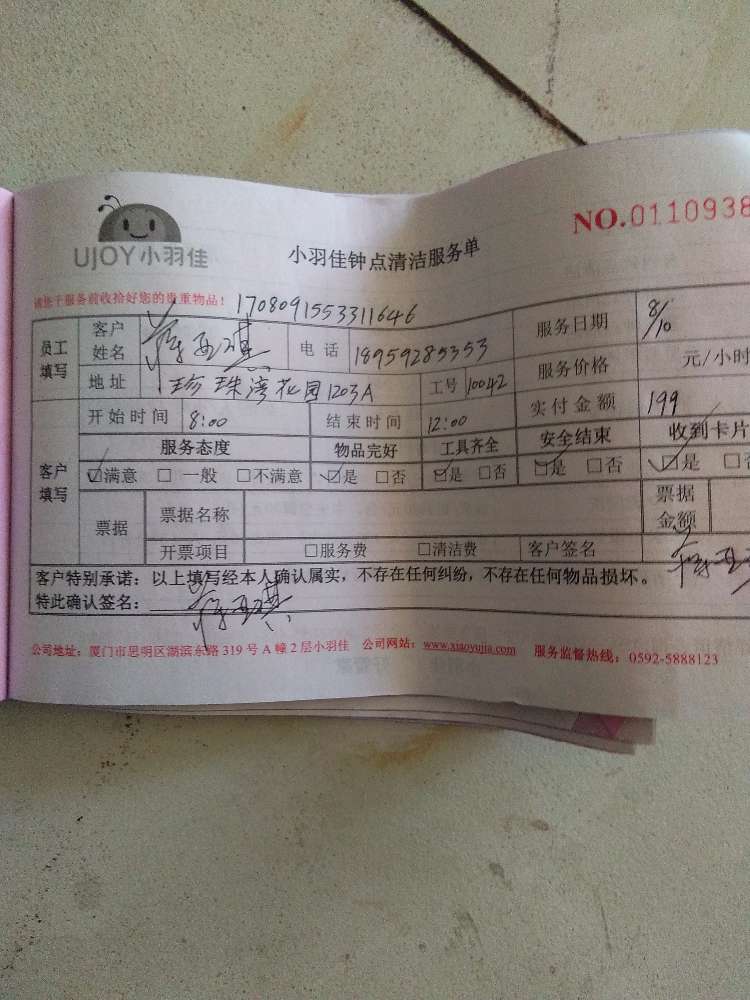 UJOY小羽佳
小羽佳钟点清洁服务单
NO.0110938
请在于服务前收拾好您的贵重物品! 1708091553311646
员工填写 客户姓名 电话 18959285353 服务日期 8/10
地址 珍珠湾花园1203A 工号 10042 服务价格 元/小时
开始时间 8:00 结束时间 12:00 实付金额 199
客户填写 服务态度 物品完好 工具齐全 安全结束 收到卡片
☑满意 □一般 □不满意 ☑是 □否 ☑是 □否 ☑是 □否 ☑是 □
票据 票据名称 票据金额
开票项目 □服务费 □清洁费 客户签名
客户特别承诺：以上填写经本人确认属实，不存在任何纠纷，不存在任何物品损坏。
特此确认签名：
公司地址：厦门市思明区湖滨东路319号A幢2层小羽佳 公司网站：www.xiaoyujia.com 服务监督热线：0592-5888123